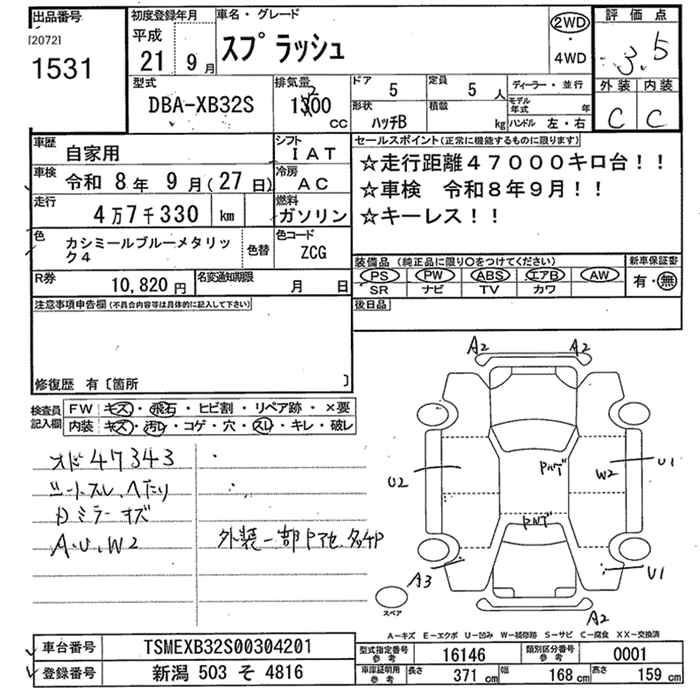 出品番号
[2072]
1531
初度登録年月
平成
21年 9月
車名・グレード
スプラッシュ
2WD
・
4WD
評価点
3.5
外装 内装
C C
型式
DBA-XB32S
排気量
1300 CC
2
ドア 5
定員 5人
ディーラー・並行
形状 ハッチB
積載 kg
モデル年式 年
ハンドル 左・右
車歴 自家用
シフト IAT
車検 令和 8年 9月(27日)
冷房 AC
走行 4万7千330 km
燃料 ガソリン
色 カシミールブルーメタリック4
色替
色コード ZCG
R券 10,820円
名変通知期限 月 日
セールスポイント(正常に機能するものに限ります)
☆走行距離47000キロ台!!
☆車検 令和8年9月!!
☆キーレス!!
装備品(純正品に限り○をつけてください)
PS PW ABS エアB AW
SR ナビ TV カワ
新車保証書
有・無
後日品
注意事項申告欄(不具合内容等は具体的に記入して下さい)
修復歴 有〔箇所 〕
検査員記入欄
FW キズ・飛石・ヒビ割・リペア跡・×要
内装 キズ・汚れ・コゲ・穴・スレ・キレ・破レ
オド 47343
シートスレ、ヘたり
Dミラーキズ
A.U.W2
外装一部
A2 A2
U2
Pハゲ
W2
U1
Pハゲ
A3
U1
A2
スペア
A-キズ E-エクボ U-凹み W-補修跡 S-サビ C-腐食 XX-交換済
車台番号 TSMEXB32S00304201
型式指定番号 参考 16146
類別区分番号 参考 0001
登録番号 新潟 503 そ 4816
車庫証明用 参考 長さ 371cm 幅 168cm 高さ 159cm